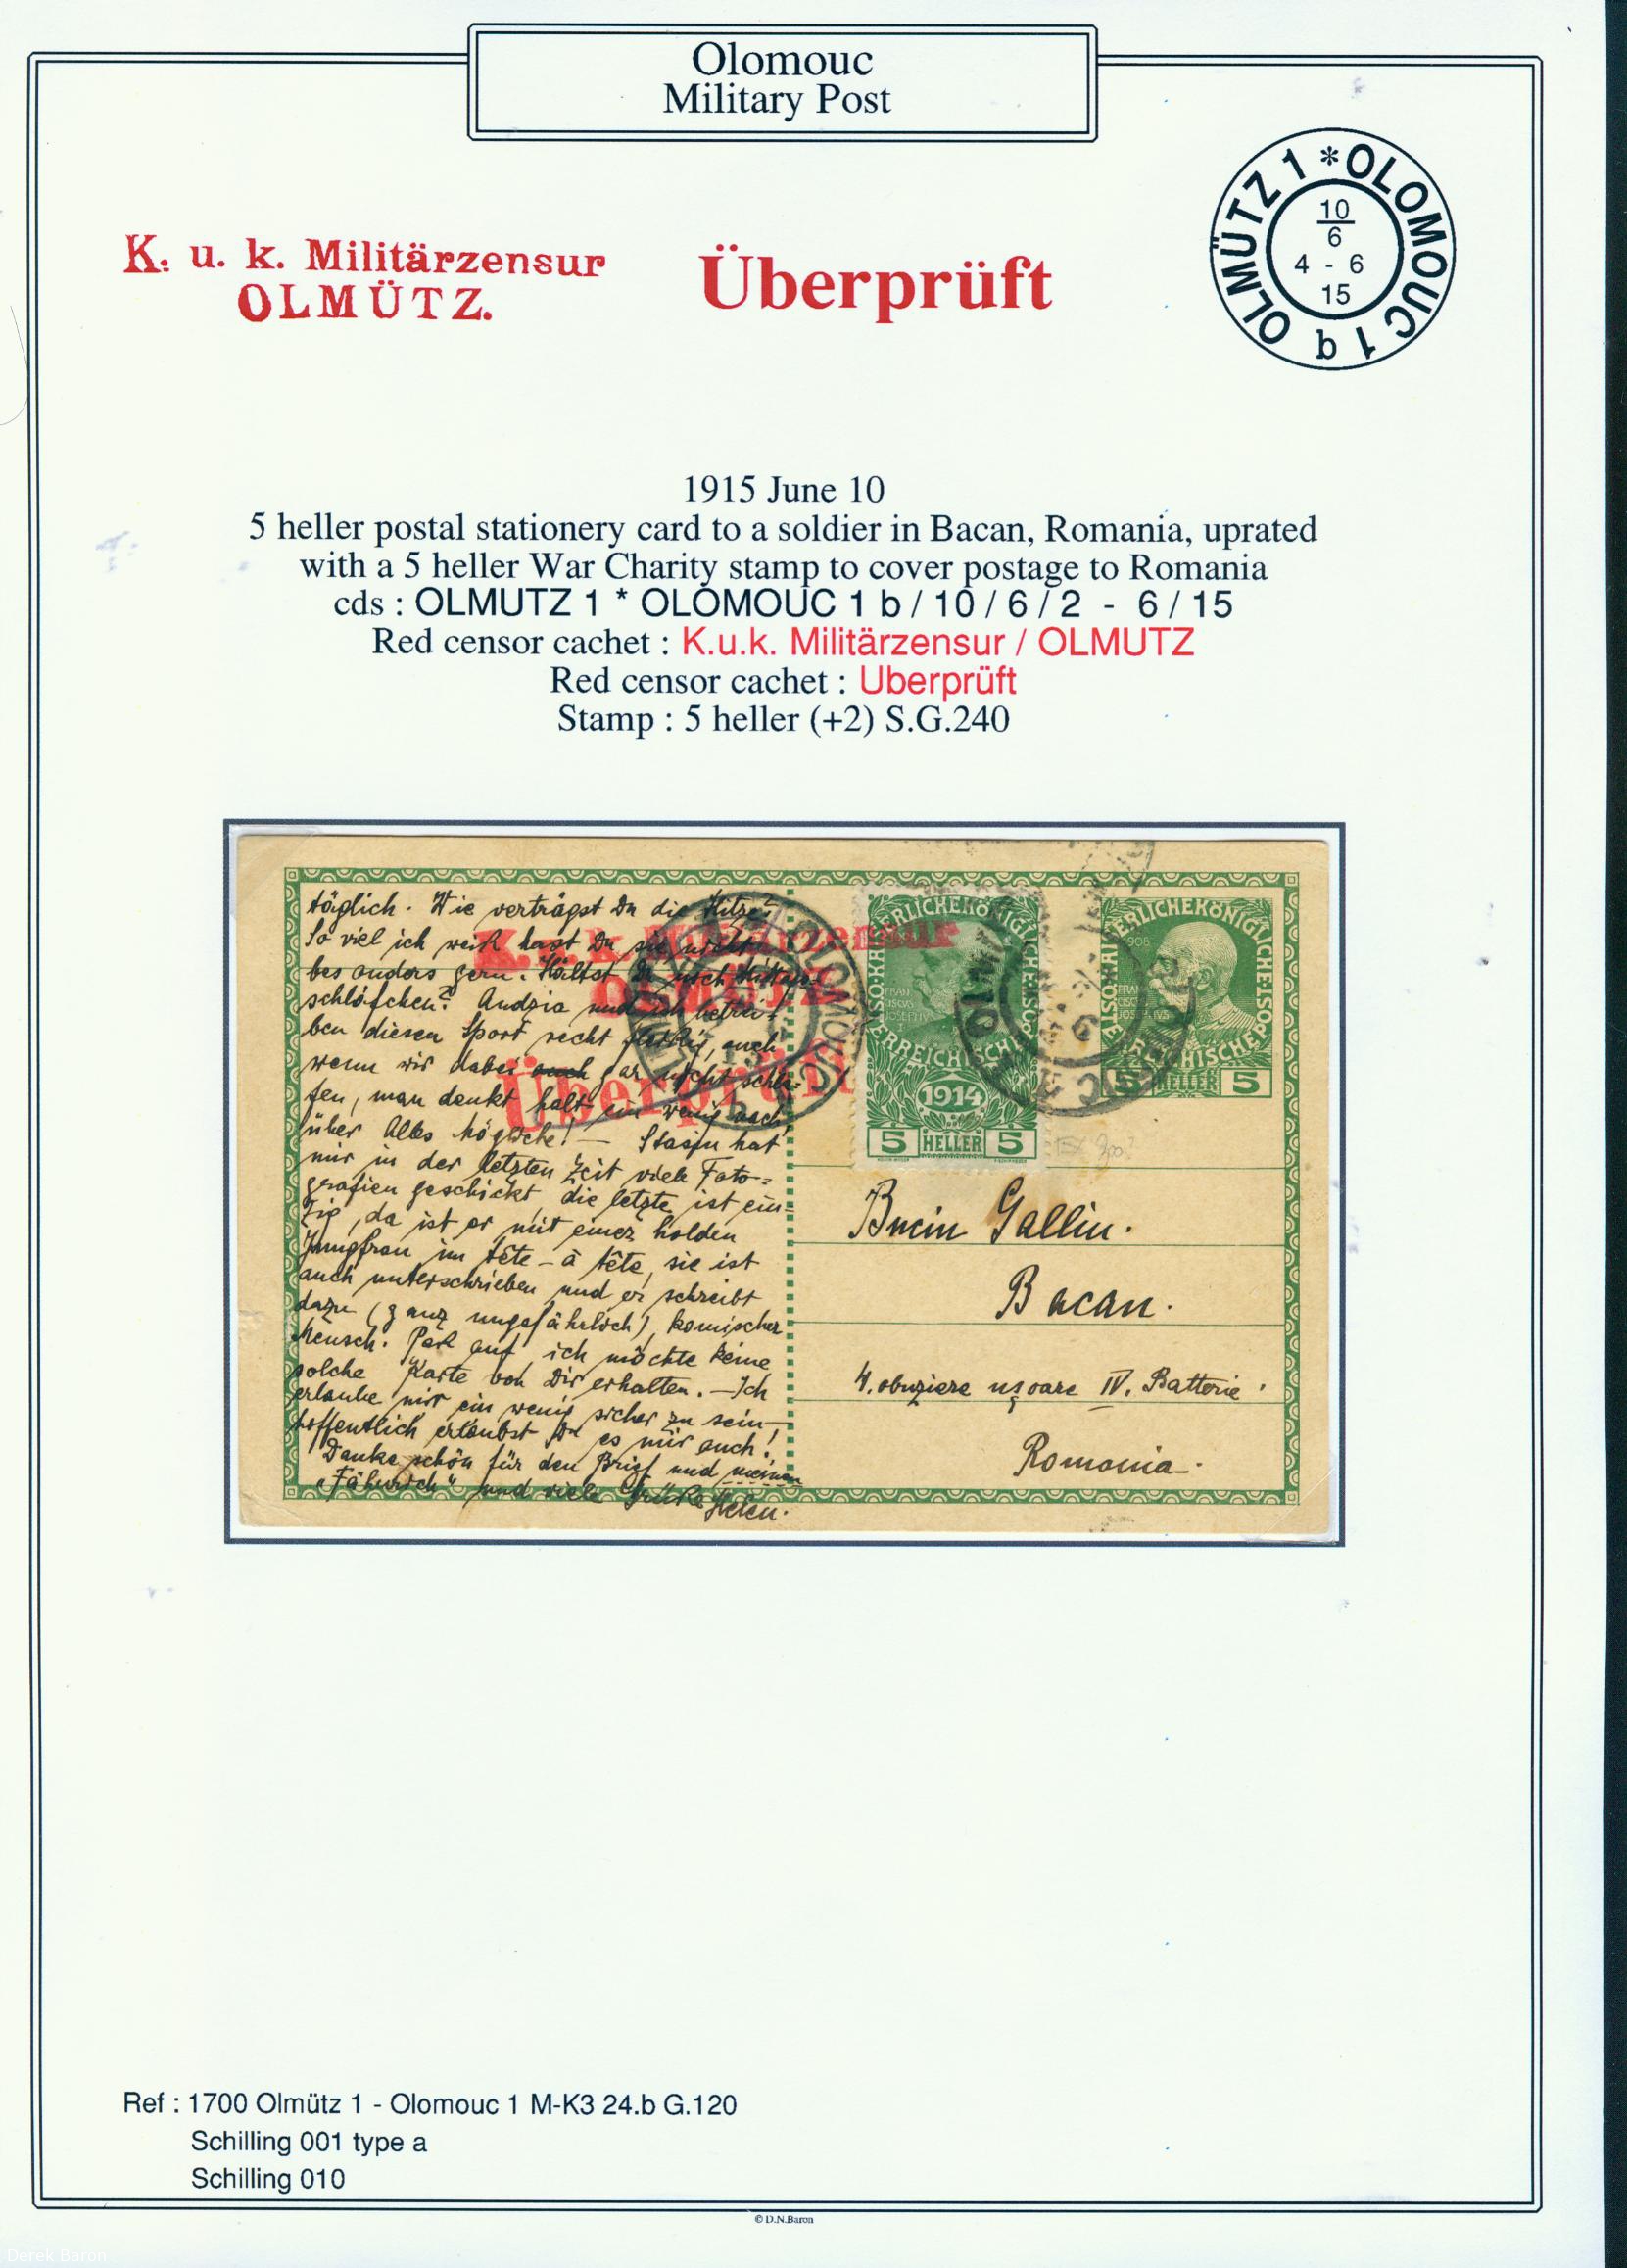 Olomouc
Military Post
K. u. k. Militärzensur
OLMÜTZ.
Überprüft
OLMÜTZ 1 * OLOMOUC 1 b
10
6
4 - 6
15
1915 June 10
5 heller postal stationery card to a soldier in Bacan, Romania, uprated
with a 5 heller War Charity stamp to cover postage to Romania
cds : OLMUTZ 1 * OLOMOUC 1 b / 10 / 6 / 2 - 6 / 15
Red censor cachet : K.u.k. Militärzensur / OLMUTZ
Red censor cachet : Uberprüft
Stamp : 5 heller (+2) S.G.240
täglich. Wie verträgst Du die Hitze?
So viel ich weiß hast Du sie nicht
besonders gern. Hältst Du noch Mittags-
schläfchen? Andzia und ich betrei-
ben diesen Sport recht fleißig, auch
wenn wir dabei auch gar nicht schla-
fen, man denkt halt ein wenig nach
über Alles Mögliche! — Stasju hat
mir in der letzten Zeit viele Foto-
grafien geschickt, die letzte ist ein-
zig, da ist er mit einer holden
Jungfrau im tête-à tête, sie ist
auch unterschrieben und er schreibt
dazu (ganz ungefährlich), komischer
Mensch. Paß auf ich möchte keine
solche Karte von Dir erhalten. — Ich
erlaube mir ein wenig sicher zu sein —
hoffentlich erlaubst Du es mir auch!
Danke schön für den Brief und meinen
"Fähnrich" und viele Grüße Helen.
K. u. k. Militärzensur
OLMÜTZ
Überprüft
OLOMOUC
KAISERLICHEKÖNIGLICHE
ÖSTERREICHISCHE
1914
5 HELLER 5
KAISERLICHEKÖNIGLICHE
1908
FRAN
CISCVS
JOSEPHVS
5 HELLER 5
Bucin Gallin.
Bacan.
4. obuziere uşoare IV. Batterie.
Romania.
Ref : 1700 Olmütz 1 - Olomouc 1 M-K3 24.b G.120
Schilling 001 type a
Schilling 010
© D.N.Baron
Derek Baron